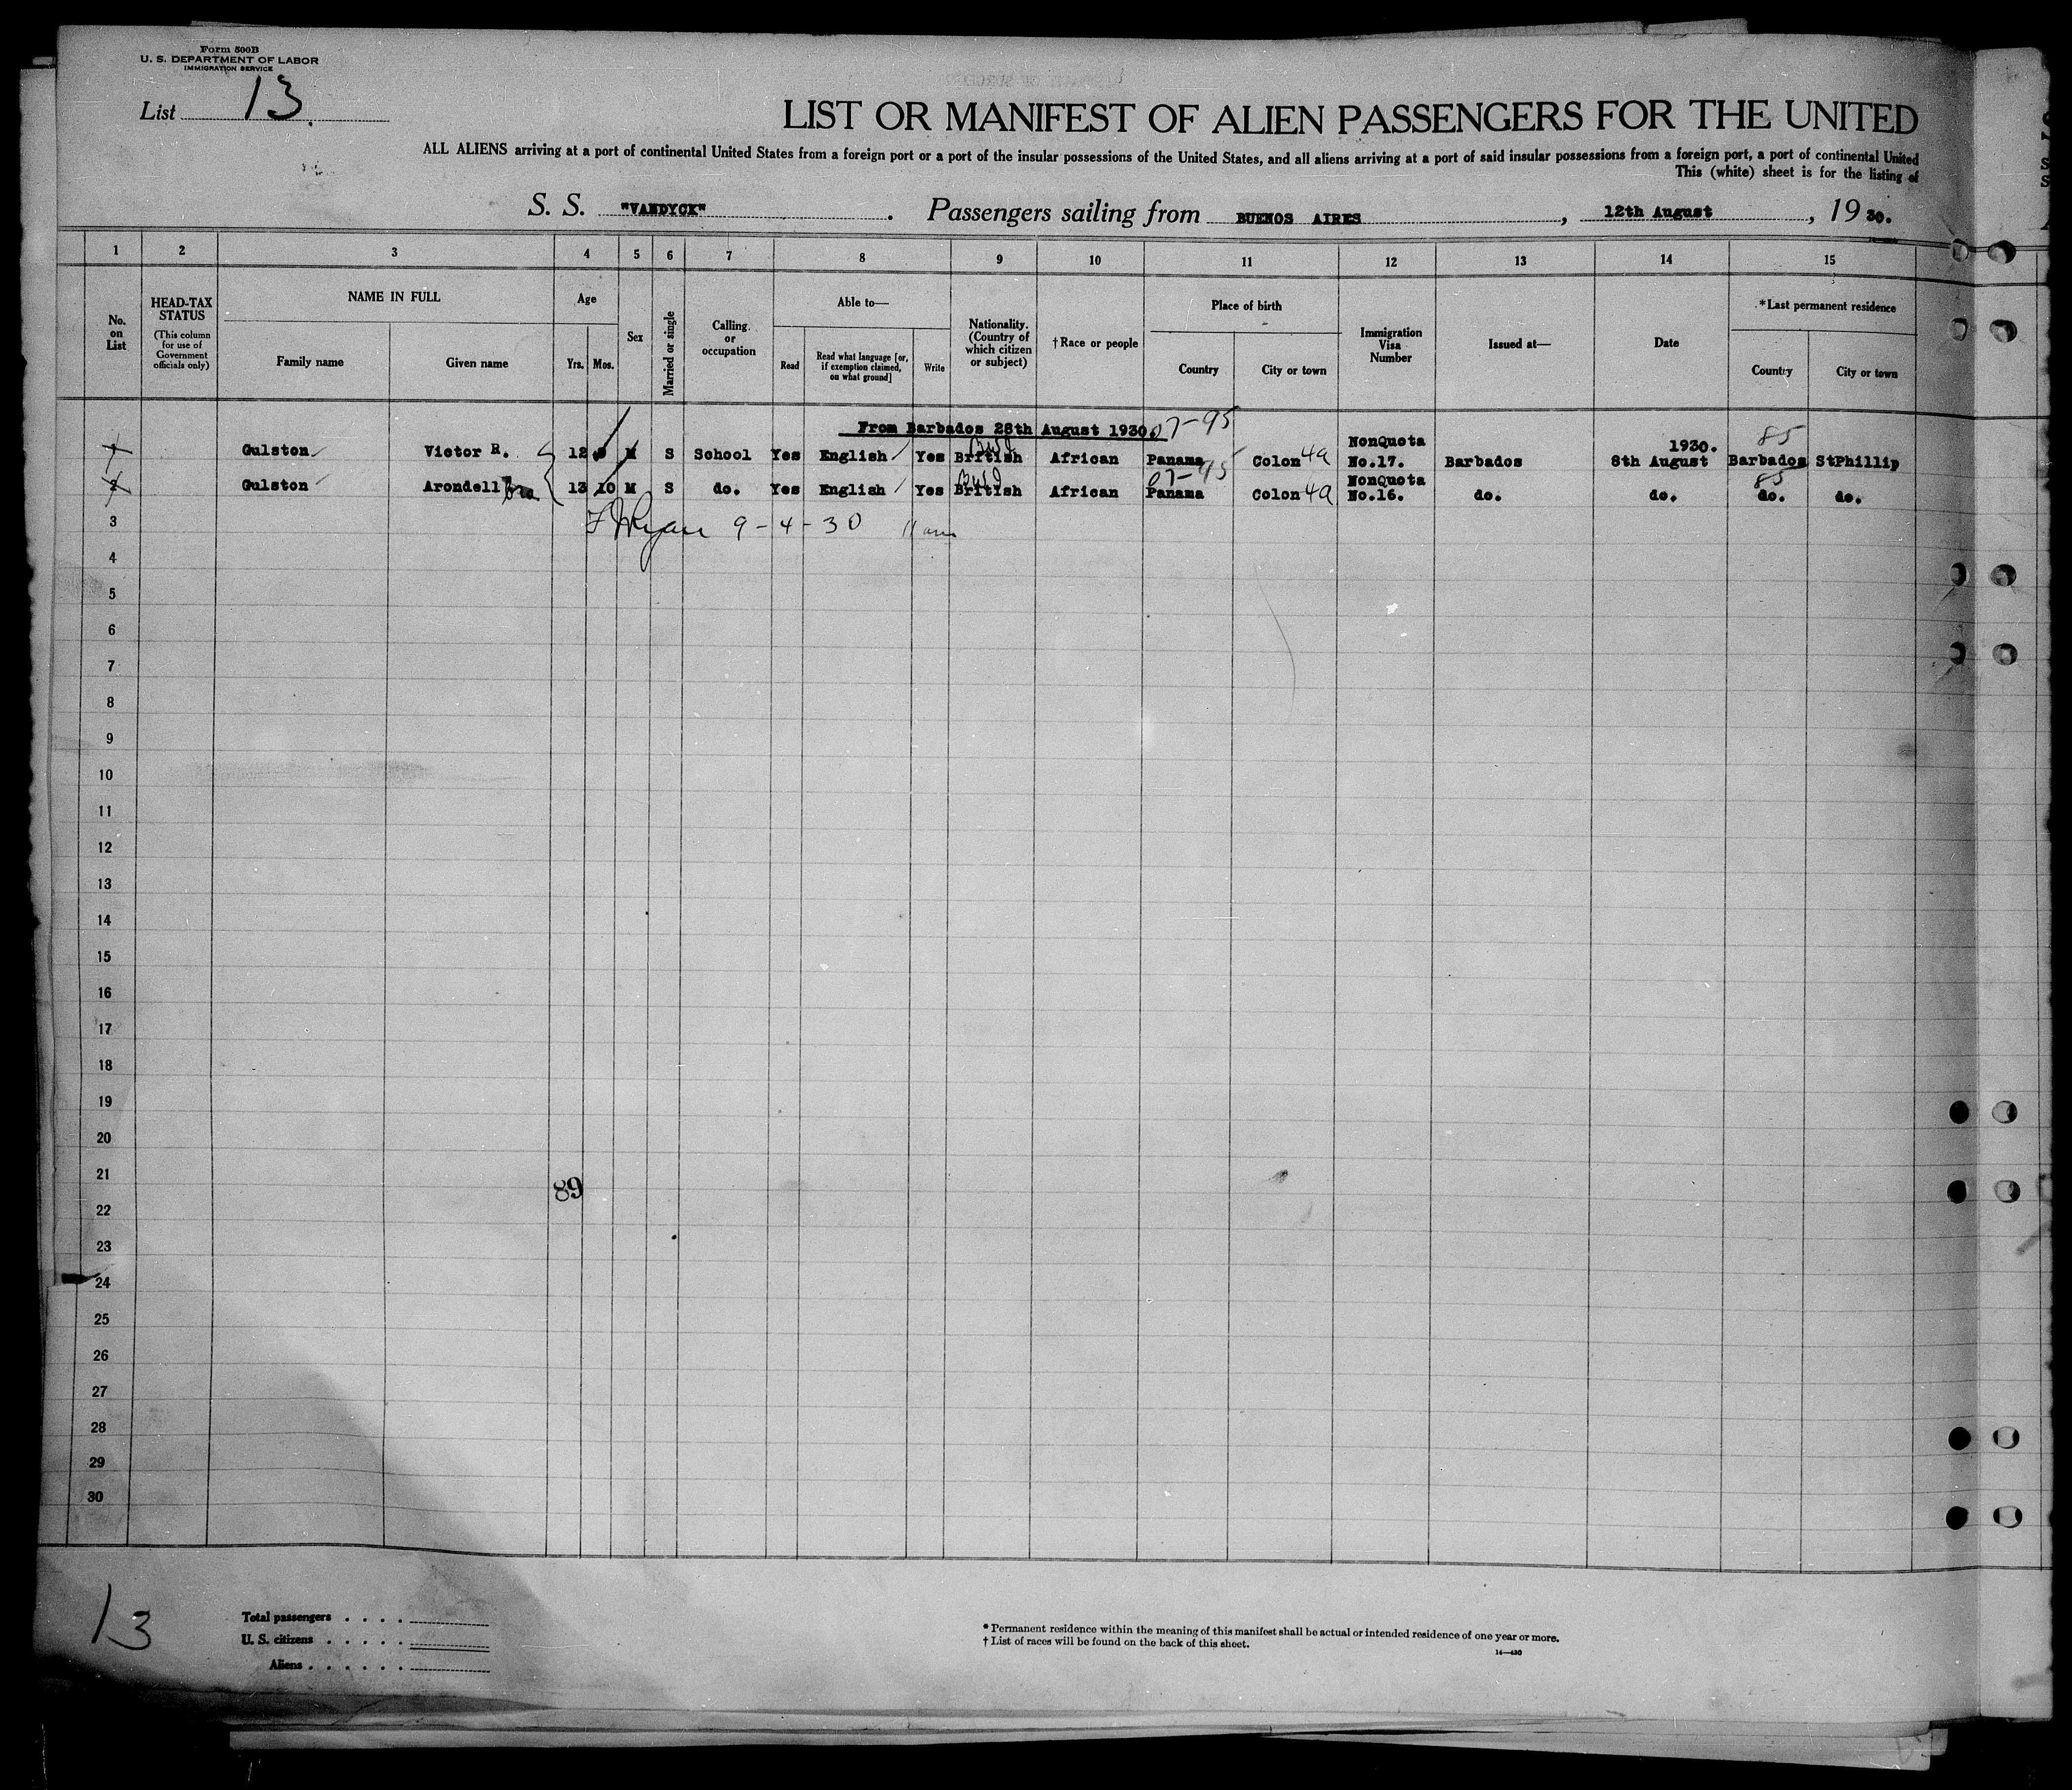 Form 500B
U. S. DEPARTMENT OF LABOR
IMMIGRATION SERVICE
List 13.
LIST OR MANIFEST OF ALIEN PASSENGERS FOR THE UNITED
ALL ALIENS arriving at a port of continental United States from a foreign port or a port of the insular possessions of the United States, and all aliens arriving at a port of said insular possessions from a foreign port, a port of continental United
This (white) sheet is for the listing of
S. S. "VANDYCK". Passengers sailing from BUENOS AIRES, 12th August, 19 30.
1 2 3 4 5 6 7 8 9 10 11 12 13 14 15
No. on List
HEAD-TAX STATUS
(This column for use of Government officials only)
NAME IN FULL
Family name Given name
Age
Yrs. Mos.
Sex
Married or single
Calling or occupation
Able to—
Read Read what language [or, if exemption claimed, on what ground] Write
Nationality. (Country of which citizen or subject)
†Race or people
Place of birth
Country City or town
Immigration Visa Number
Issued at—
Date
*Last permanent residence
Country City or town
From Barbados 28th August 1930. 07-95
1 Gulston Victor R. 12 M S School Yes English Yes British African Panama Colon 4a NonQuota No.17. Barbados 1930. 8th August 85 Barbados StPhillip
2 Gulston Arondell 13 10 M S do. Yes English Yes British African 07-95 Panama Colon 4a NonQuota No.16. do. do. 85 do. do.
3 Ryan 9-4-30 11 am
4
5
6
7
8
9
10
11
12
13
14
15
16
17
18
19
20
21
89
22
23
24
25
26
27
28
29
30
13
Total passengers . . . .
U. S. citizens . . . . .
Aliens . . . . . .
* Permanent residence within the meaning of this manifest shall be actual or intended residence of one year or more.
† List of races will be found on the back of this sheet.
14—430